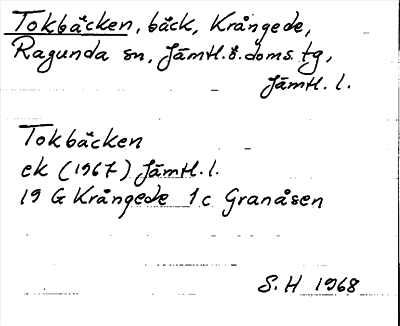 Tokbäcken, bäck, Krångede,
Ragunda sn, Jämtl.ö.doms.tg,
Jämtl. l.
Tokbäcken
ek (1967) Jämtl.l.
19 G Krångede 1c Granåsen
S.H 1968